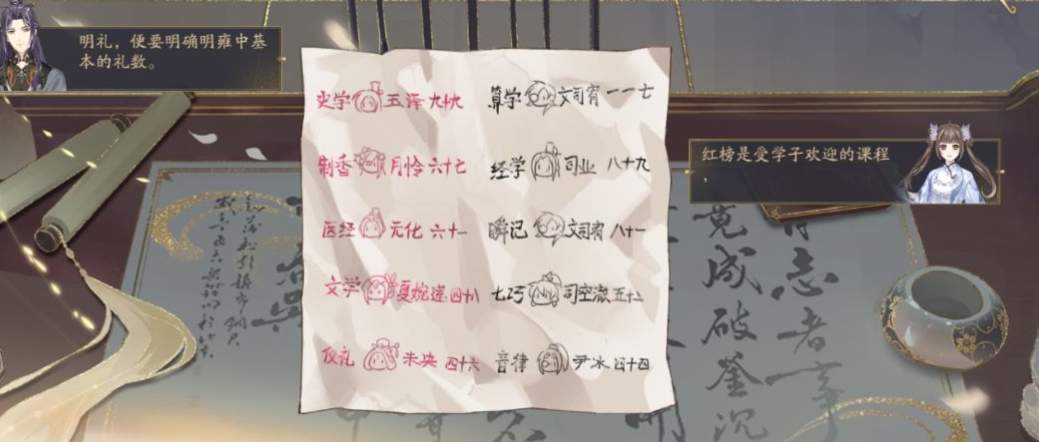 明礼，便要明确明雍中基
本的礼数。
史学 五泽 九十九
制香 月怜 六十七
医经 元化 六十一
文学 夏婉遥 四十八
仪礼 未央 四十六
算学 文司宥 一一七
经学 司业 八十九
瞬记 文司宥 八十一
七巧 司空澈 五十二
音律 尹冰 四十四
红榜是受学子欢迎的课程
。
有志者事
竟成破釜沉